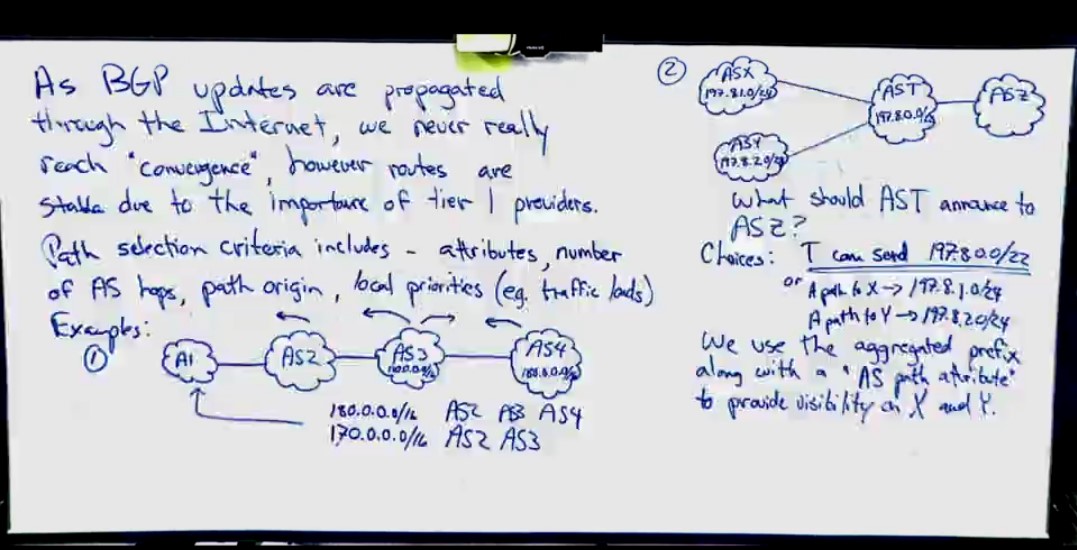 As BGP updates are propagated
through the Internet, we never really
reach "convergence", however routes are
stable due to the importance of tier 1 providers.
Path selection criteria includes - attributes, number
of AS hops, path origin, local priorities (eg. traffic loads)
Examples:
①
A1
AS2
AS3
AS4
180.0.0.0/16 AS2 AS3 AS4
170.0.0.0/16 AS2 AS3
②
ASX
197.8.1.0/24
AST
197.8.0.0/22
ASZ
ASY
197.8.2.0/24
What should AST announce to
ASZ?
Choices: T can send 197.8.0.0/22
or A path to X → 197.8.1.0/24
A path to Y → 197.8.2.0/24
We use the aggregated prefix
along with a "AS path attribute"
to provide visibility on X and Y.